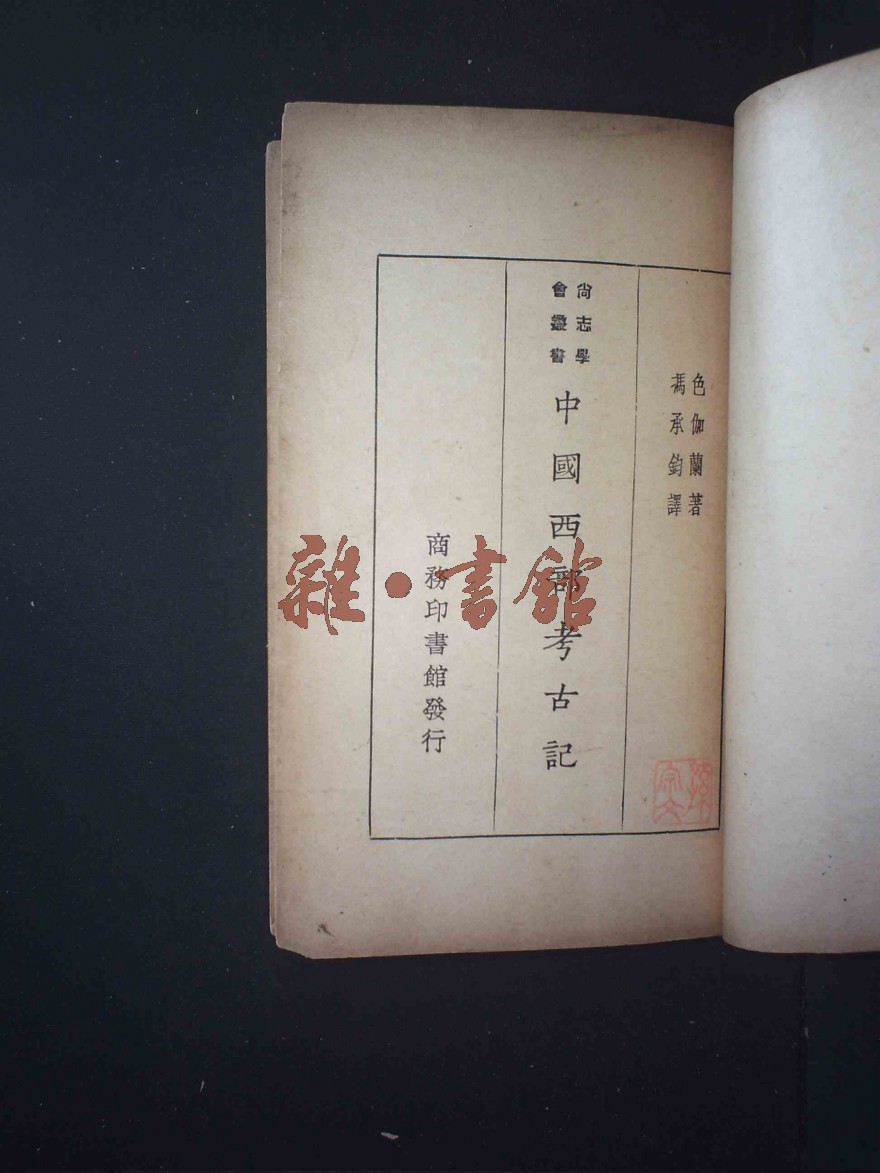 色伽蘭著
馮承鈞譯
尚志學
會叢書
中國西部考古記
商務印書館發行
雜·書館